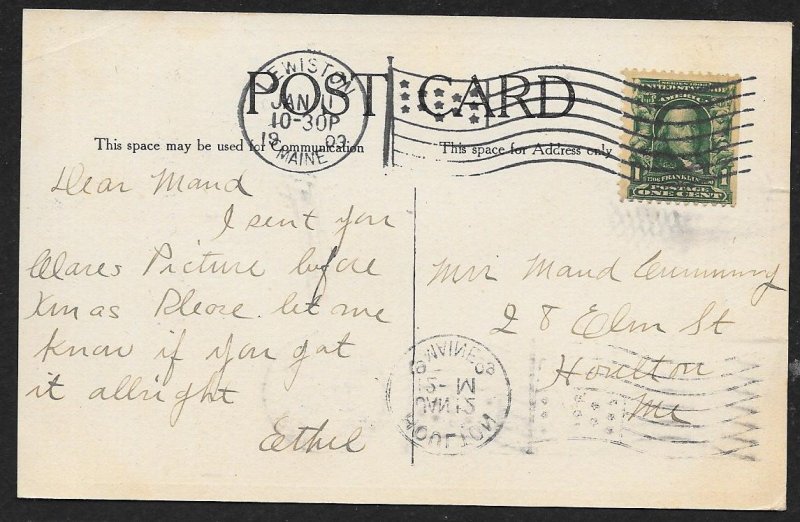 POST CARD
LEWISTON
JAN 11
10-30P
19 09
MAINE
This space may be used for Communication
This space for Address only
SERIES 1902
UNITED STATES OF
AMERICA
1706 FRANKLIN
POSTAGE
ONE CENT
Dear Maud
I sent you
Clares Picture before
Xmas Please let me
know if you got
it allright
Ethel
Maud Cumming
28 Elm St
Houlton
Me
HOULTON
JAN 12
MAINE
09